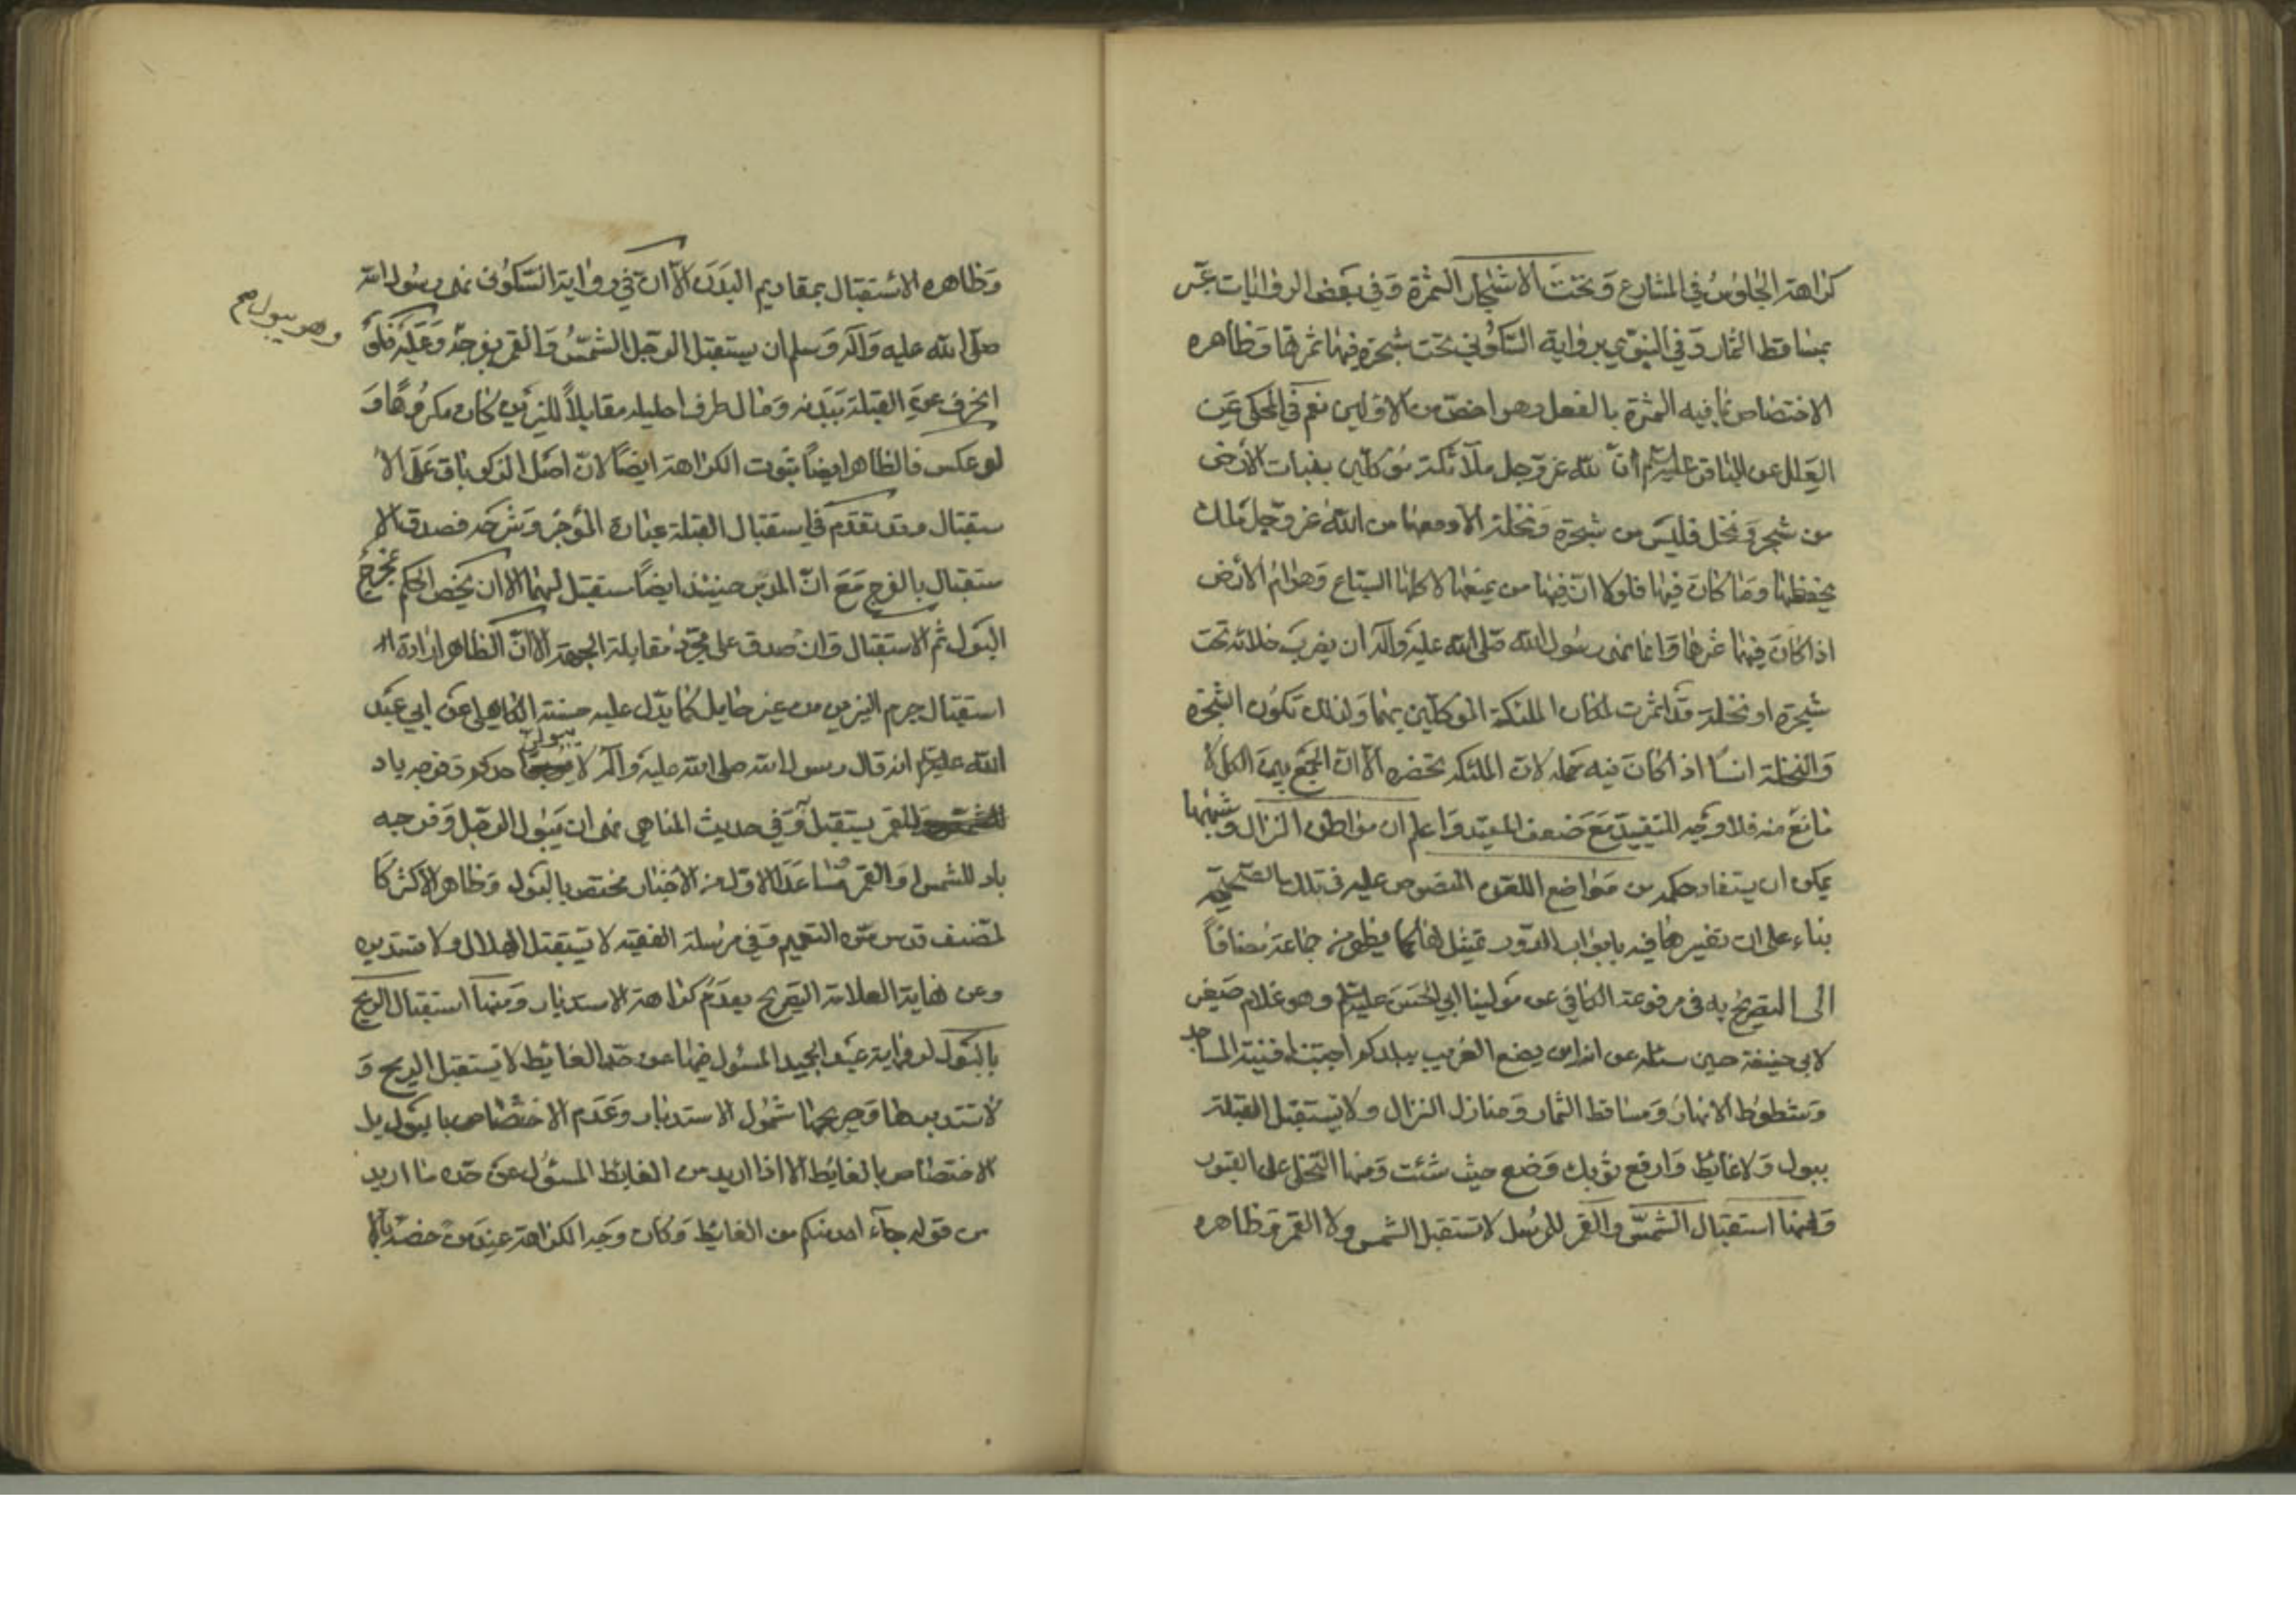 كراهة الجلوس في المشارع وتحت الاشجار المثمرة وفي بعض الروايات عبّر
بمساقط الثمار وفي النبوي برواية السّكوني تحت شجرة فيها ثمرتها وظاهره
الاختصاص بما فيه الثمرة بالفعل وهو اخصّ من الاولين نعم في المحكي عن
العلل عن الباقر عليه السلام انّ لله عز وجل ملآئكة موكلين بنبات الأرض
من شجر ونخل فليس من شجرة ونخلة الا ومعها من الله عز وجل ملك
يحفظها وما كان فيها فلولا انّ فيها من يمنعها لاكلها السباع وهوام الأرض
اذا كان فيها ثمرها وانما نهى رسول الله صلى الله عليه وآله ان يضرب خلائه تحت
شجرة او نخلة قد اثمرت لمكان الملئكة الموكلين بها ولذلك تكون الشجرة
والنخلة انسا اذا كان فيه حمله لان الملئكة تحضره الا ان الجمع بين الكل لا
مانع منه فلا وجه للتقييد مع ضعف المقيد واعلم ان مواطن النزال وشبهها
يمكن ان يستفاد حكمه من مواضع اللعن المنصوص عليه في تلك الصحيحة
بناء على ان تفسيرها فيه بابواب الدور تمثيل لها كما يظهر من جماعة مضافاً
الى التصريح به في مرفوعة الكافي عن مولينا ابي الحسن عليه السلام وهو غلام صغير
لابي حنيفة حين سئله عن انه اين يضع الغريب ببلدكم اجتناب افنية المساجد
وشطوط الانهار ومساقط الثمار ومنازل النزال ولا يستقبل القبلة
ببول ولا غايط وارفع ثوبك وضع حيث شئت ومنها التخلي على القبور
ومنها استقبال الشمس والقمر للمرسل لا تستقبل الشمس ولا القمر وظاهره
وظاهره الاستقبال بمقاديم البدن الا ان في رواية السكوني نهى رسول الله
صلى الله عليه وآله وسلم ان يستقبل الرجل الشمس والقمر بفرجه وعليه فلو
وهو يبول صح
انحرف عن القبلة ببدنه ومال طرف احليله مقابلاً للنيرين كان مكروها و
لو عكس فالظاهر ايضاً ثبوت الكراهة ايضاً لان اصل الذكر باق على الا
ستقبال وقد تقدم في استقبال القبلة عبارة الموجز وشرحه فصدق الا
ستقبال بالفرج مع انّ البدن حينئذ ايضاً مستقبل لهما الا ان يخص الحكم بمخرج
البول ثم الاستقبال وان صدق على مجرد مقابلة الجهة الا ان الظاهر ارادة
استقبال جرم النيرين من غير حايل كما يدل عليه حسنة الكاهلي عن ابي عبد
الله عليه السلام انه قال رسول الله صلى الله عليه وآله لا يبولن احدكم وفرجه باد
للقمر يستقبل وفي حديث المناهي نهى ان يبول الرجل وفرجه
باد للشمس والقمر وما عدا الاول من الاخبار مختص بالبول وظاهر الاكثر كا
لمصنف قدس سره التعميم وفي مرسلة الفقيه لا تستقبل الهلال ولا تستدبره
وعن نهاية العلامة التصريح بعدم كراهة الاستدبار ومنها استقبال الريح
بالبول لرواية عبد الحميد المسئول فيها عن حد الغايط لا تستقبل الريح و
لا تستدبرها وصريحها شمول الاستدبار وعدم الاختصاص بالبول بل
الاختصاص بالغايط الا اذا اريد من الغايط المسئول عن حده ما اريد
من قوله جآء احد منكم من الغايط وكان وجه الكراهة عند من خصه بالا